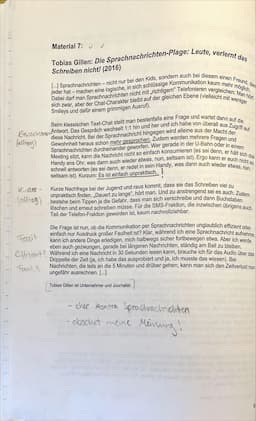 Material 7:
Tobias Gillen: Die Sprachnachrichten-Plage: Leute, verlernt das
Schreiben nicht! (2016)
[...] Sprachnachrichten – nicht nur bei den Kids, sondern auch bei diesem einen Freund, den
jeder hat – machen eine logische, in sich schlüssige Kommunikation kaum mehr möglich.
Dabei darf man Sprachnachrichten nicht mit „richtigem" Telefonieren vergleichen: Man hört
sich zwar, aber der Chat-Charakter bleibt auf der gleichen Ebene (vielleicht mit weniger
Smileys und dafür einem grimmigen Ausruf).
Beim klassischen Text-Chat stellt man bestenfalls eine Frage und wartet dann auf die
Antwort. Das Gespräch wechselt 1:1 hin und her und ich habe von überall aus Zugriff auf
diese Nachricht. Bei der Sprachnachricht hingegen wird alleine aus der Macht der
Gewohnheit heraus schon mehr gesprochen. Zudem werden mehrere Fragen und
Sprachnachrichten durcheinander geworfen. Wer gerade in der U-Bahn oder in einem
Meeting sitzt, kann die Nachricht nicht so einfach konsumieren (es sei denn, er hält sich das
Handy ans Ohr, was dann auch wieder etwas, nun, seltsam ist). Ergo kann er auch nicht so
schnell antworten (es sei denn, er redet in sein Handy, was dann auch wieder etwas, nun,
seltsam ist). Kurzum: Es ist einfach unpraktisch.
Kurze Nachfrage bei der Jugend und raus kommt, dass sie das Schreiben viel zu
unpraktisch finden. „Dauert zu lange", hört man. Und zu anstrengend sei es auch. Zudem
bestehe beim Tippen ja die Gefahr, dass man sich verschreibe und dann Buchstaben
löschen und erneut schreiben müsse. Für die SMS-Fraktion, die inzwischen übrigens auch
Teil der Telefon-Fraktion geworden ist, kaum nachvollziehbar.
Die Frage ist nun, ob die Kommunikation per Sprachnachrichten unglaublich effizient oder
einfach nur Ausdruck großer Faulheit ist? Klar, während ich eine Sprachnachricht aufnehme,
kann ich andere Dinge erledigen, mich halbwegs sicher fortbewegen etwa. Aber ich werde
eben auch gezwungen, gerade bei längeren Nachrichten, ständig am Ball zu bleiben.
Während ich eine Nachricht in 30 Sekunden lesen kann, brauche ich für das Audio über das
Doppelte der Zeit (ja, ich habe das ausprobiert und ja, ich musste das wissen). Bei
Nachrichten, die teils an die 5 Minuten und drüber gehen, kann man sich den Zeitverlust nur
ungefähr ausrechnen. [...]
Tobias Gillen ist Unternehmer und Journalist.
- eher kontra Sprachnachrichten
- absolut meine Meinung!